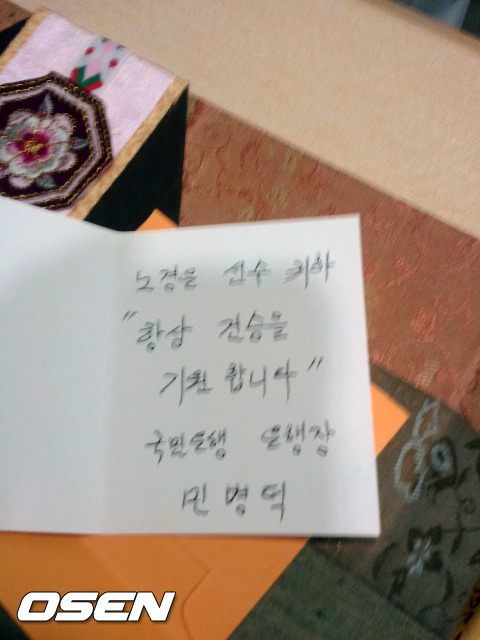 노경은 선수 귀하
"항상 건승을
기원 합니다"
국민은행 은행장
민병덕
OSEN